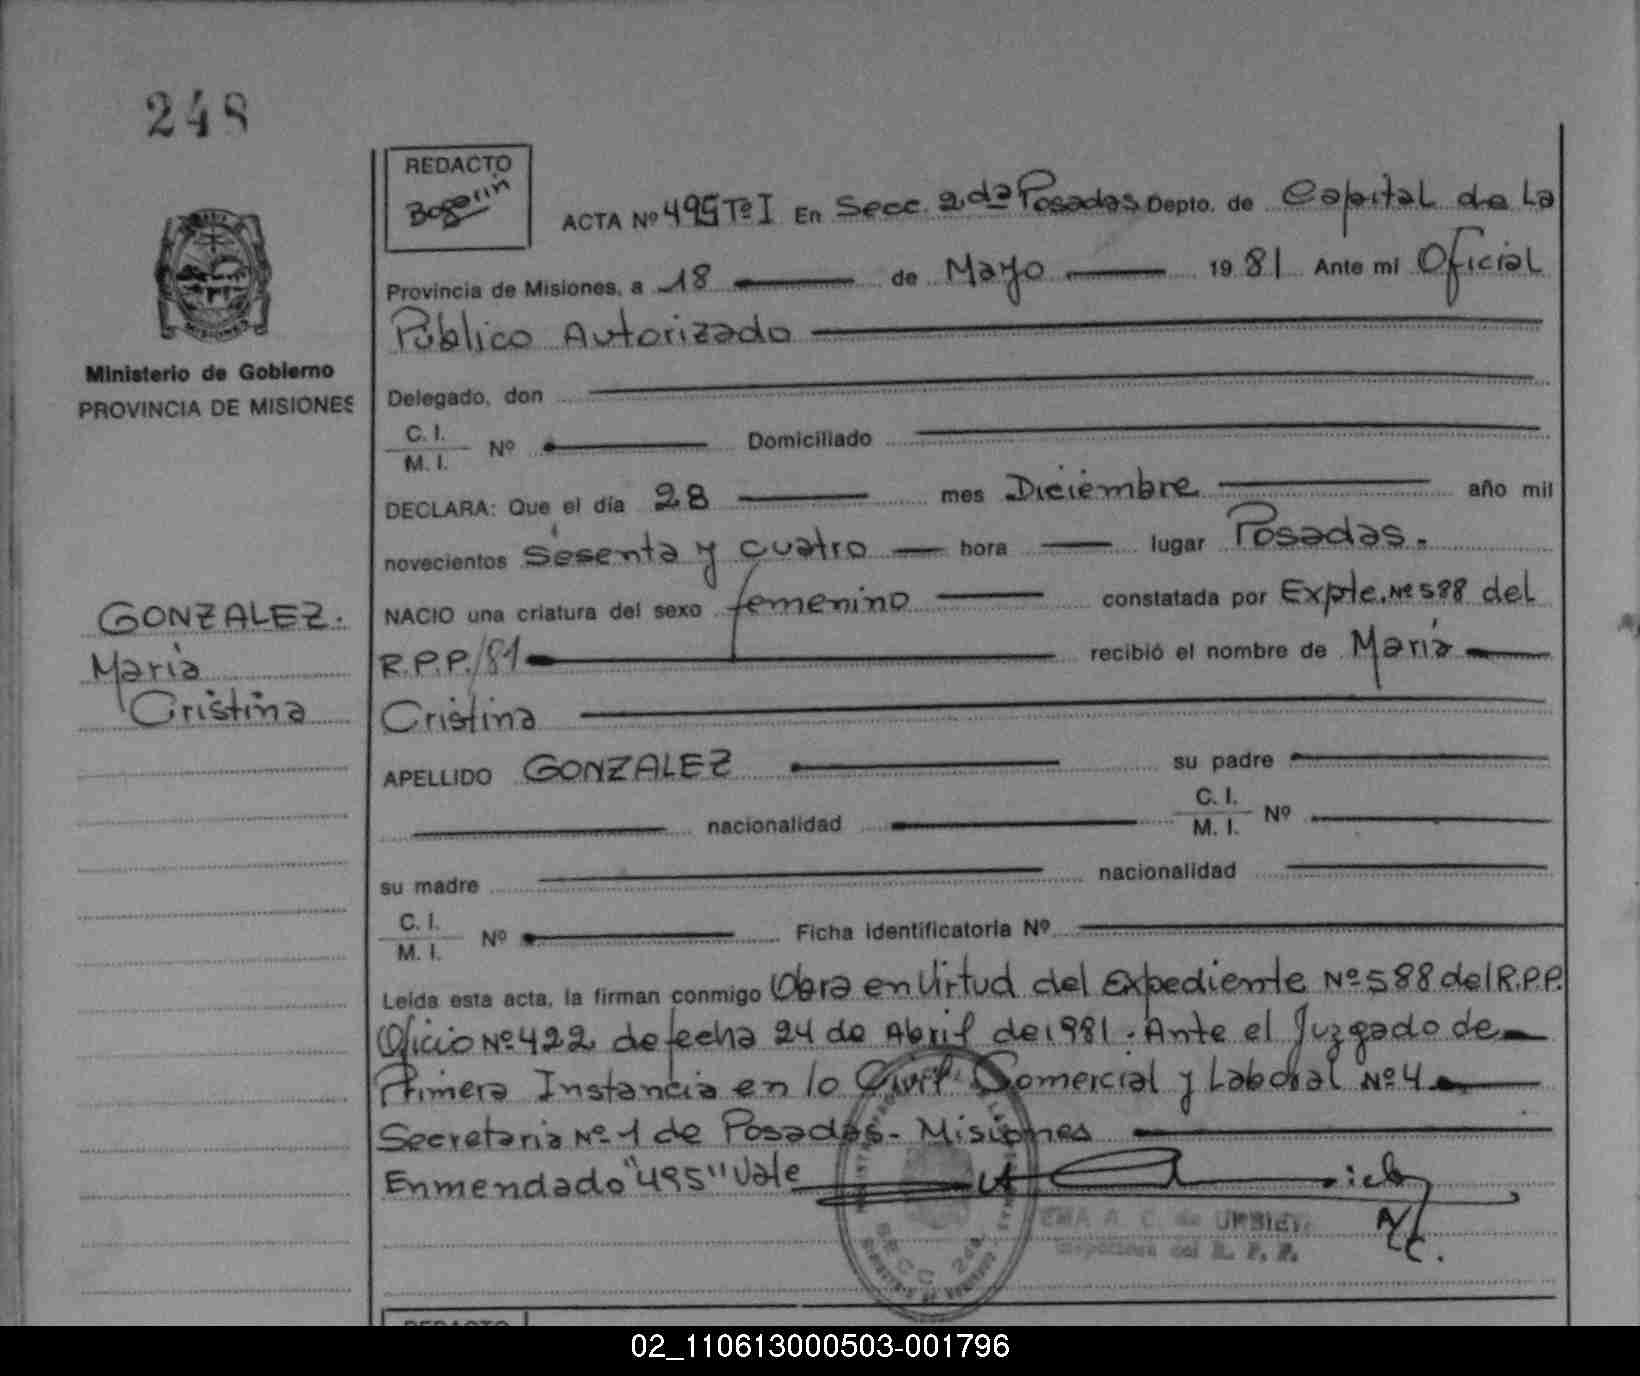 248
REDACTO
Bogarin
ACTA Nº 495 Tº I En Secc. 2da Posadas Depto. de Capital de La
Provincia de Misiones, a 18 de Mayo 1981 Ante mi Oficial
Público Autorizado
Ministerio de Gobierno
PROVINCIA DE MISIONES
Delegado, don
C. I.
M. I. Nº Domiciliado
DECLARA: Que el día 28 mes Diciembre año mil
novecientos Sesenta y cuatro hora lugar Posadas.
GONZALEZ.
Maria
Cristina
NACIO una criatura del sexo femenino constatada por Expte. Nº 588 del
R.P.P./81 recibió el nombre de Maria
Cristina
APELLIDO GONZALEZ su padre
nacionalidad C. I.
M. I. Nº
su madre nacionalidad
C. I.
M. I. Nº Ficha Identificatoria Nº
Leída esta acta, la firman conmigo Obra en Virtud del Expediente Nº 588 del R.P.P.
Oficio Nº 422 de fecha 24 de Abril de 1981. Ante el Juzgado de
Primera Instancia en lo Civil Comercial y Laboral Nº 4
Secretaria Nº 1 de Posadas - Misiones
Enmendado "495" Vale
SECC 2da.
A. C. de URBIETA
del R. P. P.
A/C.
REDACTO
02_110613000503-001796